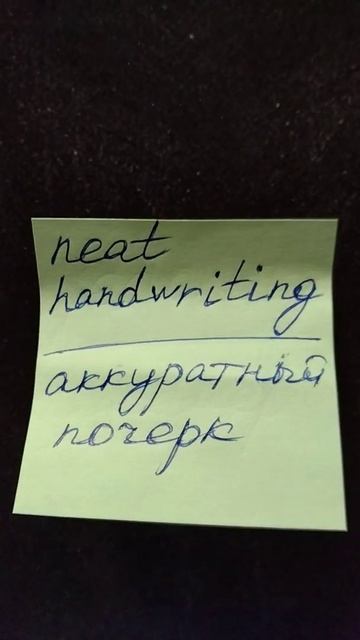 neat
handwriting
аккуратный
почерк